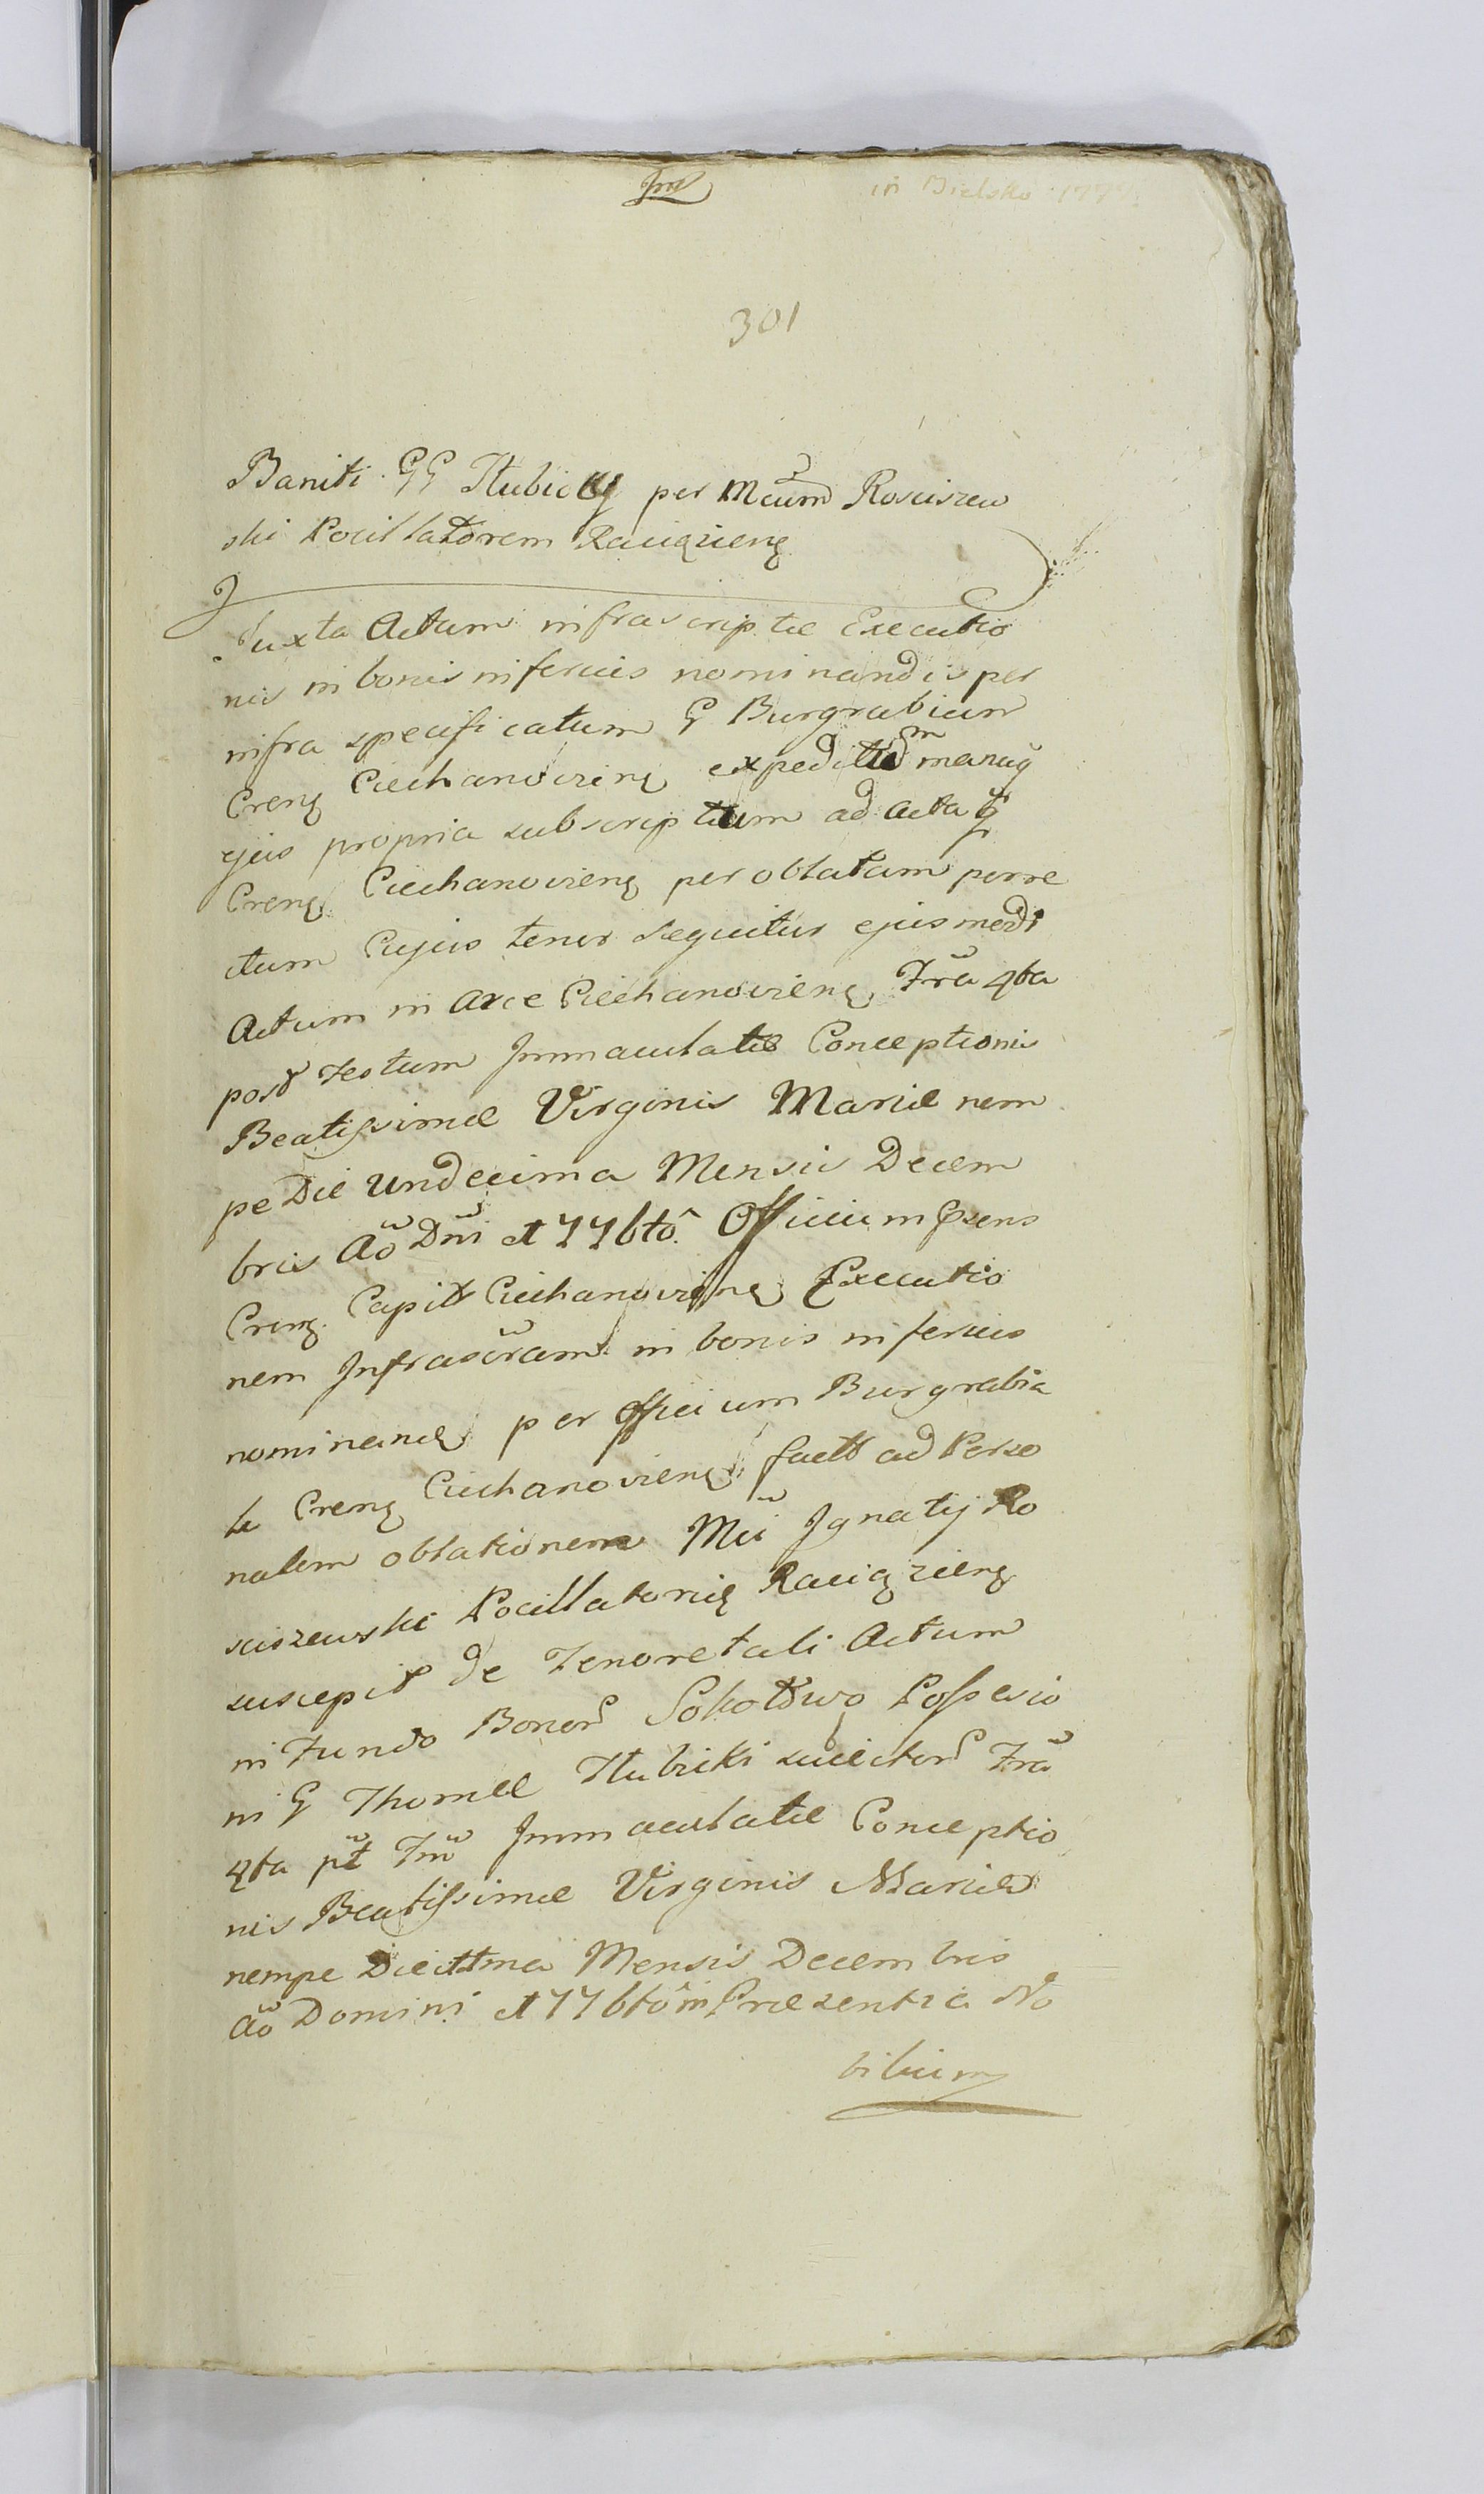 in Bielsko 177
301
Baniti GG Hubicky per Mcum Rosciszew
ski Pocillatorem Raciązieng
Juxta Actum infrascriptæ Executio
nis in bonis inferius nominandis per
infra specificatum G Burgrabium
Creng Ciechanovieng expeditum manuq
ejus propria subscriptum ad acta
Creng Ciechanovieng per oblatam porre
ctum Cujus tenor sequitur ejusmodi
Actum in Arce Ciechanovieng Fra 4ta
post Festum Immaculatæ Conceptionis
Beatissimæ Virginis Mariæ nem
pe Die Undecima Mensis Decem
bris Ao Dni 1776to Officium Psens
Creng Capit Ciechanovieng Executio
nem Infrascram in bonis inferius
nominand per Officium Burgrabia
le Creng Ciechanovieng fact ad Perso
nalem oblationem Mci Ignatij Ro
sciszewski Pocillatoris Raciązieng
suscepit de Tenore tali Actum
in Fundo Bonor Sokołowo Possesio
ni G Thomæ Hubicki succitor Fra
4ta pt Fm Immaculatæ Conceptio
nis Beatissimæ Virginis Mariæ
nempe Die 11ma Mensis Decembris
Ao Domini 1776to in Præsentia No
bilium